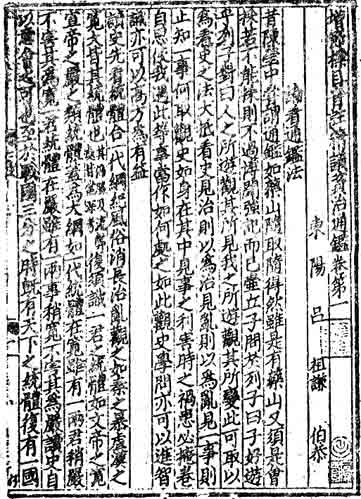 增節標目音註精議資治通鑑卷第一
東陽 呂 祖謙 伯恭
讀通鑑法
昔陳瑩中嘗謂通鑑如藥山隨取隨得然雖是有藥山又須是會
採若不能採則不過博聞強記而已壺丘子問於列子曰子好遊
乎列子對曰人之所遊觀其所見我之所遊觀其所變此可取以
為看史之法大抵看史見治則以為治見亂則以為亂見一事則
止知一事何取觀史如身在其中見事之利害時之禍患必掩卷
自思使我遇此等事當作如何處之如此觀史學問亦可以進智
識亦可以高方為有益
讀史先看統體合一代綱紀風俗消長治亂觀之如秦之暴虐漢之
寬大皆其統體也復須識一君之統體如文帝之寬
宣帝之嚴之類統體蓋為大綱如一代統體在寬雖有一兩君稍嚴
不害其為寬一君統體在嚴雖有一兩事稍寬不害其為嚴讀史自
以意會之可也至於戰國三分之時既有天下之統體復有一國